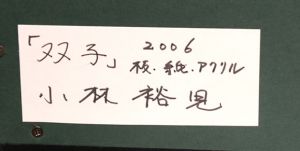 「双子」 2006
板・紙・アクリル
小林裕児